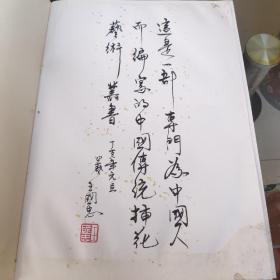 這是一部 專門為中國人
而編寫的中國傳統插花
藝術 叢書
丁亥年元旦
王國忠